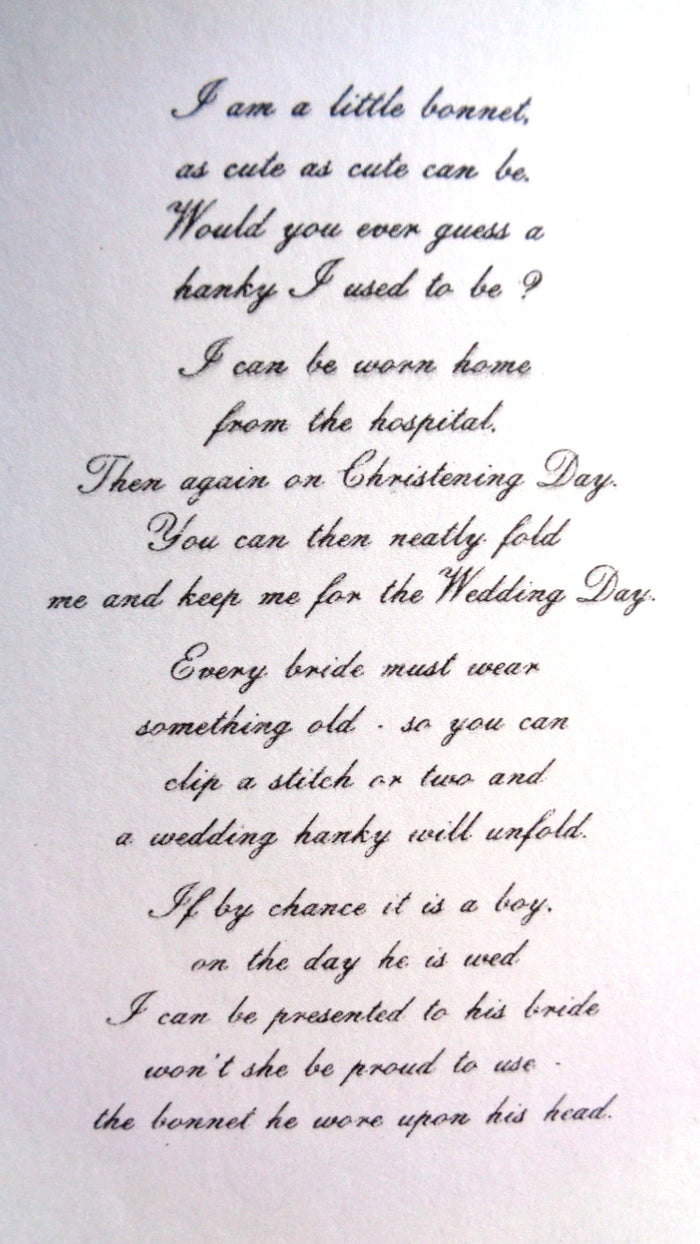 I am a little bonnet,
as cute as cute can be.
Would you ever guess a
hanky I used to be ?
I can be worn home
from the hospital.
Then again on Christening Day.
You can then neatly fold
me and keep me for the Wedding Day.
Every bride must wear
something old - so you can
clip a stitch or two and
a wedding hanky will unfold.
If by chance it is a boy,
on the day he is wed
I can be presented to his bride
won't she be proud to use -
the bonnet he wore upon his head.